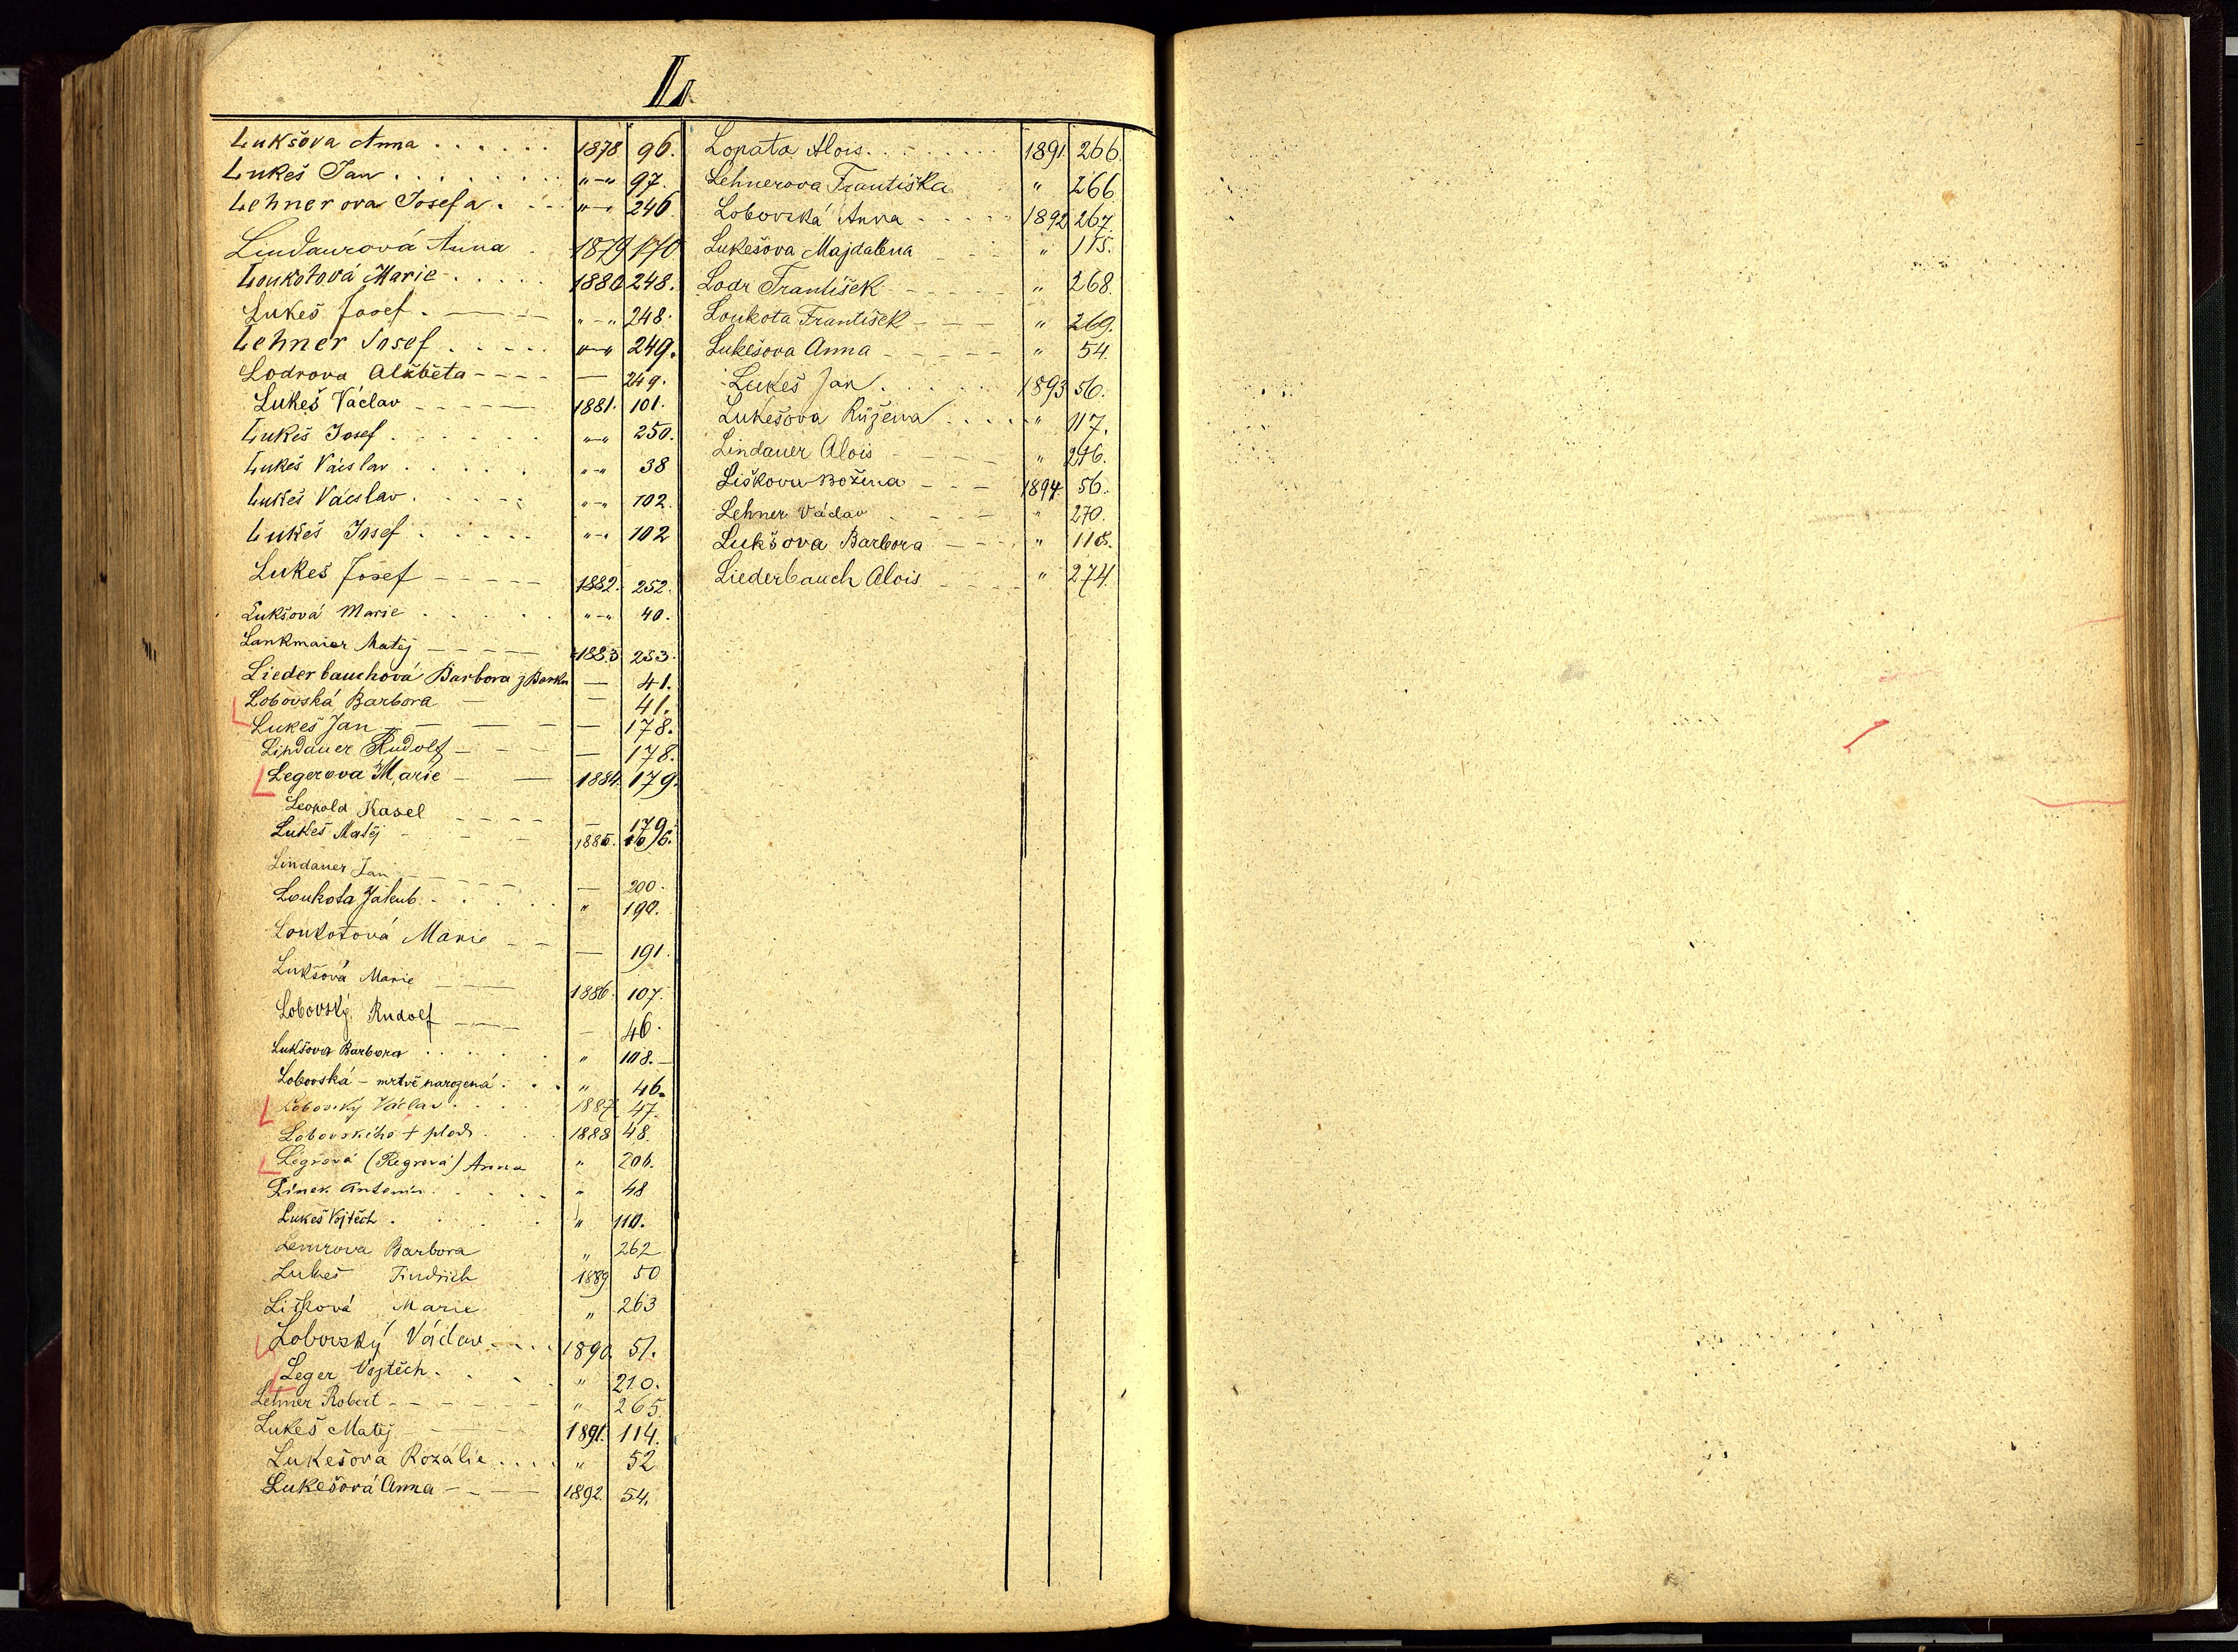 L.
Lukšova Anna . . . . . . 1878 96.
Lukeš Jan . . . . . . . „–„ 97.
Lehnerova Josefa . . . „–„ 246
Lindaurová Anna . 1879 170
Loukotová Marie . . . . . 1880 248.
Lukeš Josef . — — — „–„ 248.
Lehner Josef . . . . . „–„ 249.
Lodrova Alžběta - - - - — 249.
Lukeš Václav - - - - — 1881. 101.
Lukeš Josef . . . . . . „–„ 250.
Lukeš Václav . . . . . „–„ 38
Lukeš Václav . . . . . „–„ 102.
Lukeš Josef . . . . . „–„ 102
Lukeš Josef - - - - - 1882. 252.
Lukšová Marie . . . . . „–„ 40.
Lankmaier Matěj - - - - — 1883 253.
Liederbauchová Barbora z Barku — 41.
Lobovská Barbora — — 41.
Lukeš Jan — — — — — 178.
Lindauer Rudolf — - - - — 178.
Legerova Marie — — 1884. 179.
Leopold Karel - - - - — 179.
Lukeš Matěj - - - 1885. 106.
Lindauer Jan - - - - - — 200.
Loukota Jakub . . . . . „ 190.
Loukotová Marie - - — 191.
Lukšová Marie - - — 1886. 107.
Lobovský Rudolf - - — — 46.
Lukšova Barbora . . . . . „ 108.—
Lobovská – mrtvě narozená . . . „ 46.
Lobovský Václav . . . . 1887 47.
Lobovského + plod . . . 1888 48.
Légrová (Regrová) Anna „ 206.
Linek Antonín . . . . . „ 48
Lukeš Vojtěch . . . . . „ 110.
Barbora „ 262
Lukeš Jindřich 1889 50
Lišková Marie „ 263
Lobovský Václav . . . . 1890. 51.
Leger Vojtěch . . . . „ 210.
Lehner Robert - - - - - - „ 265.
Lukeš Matěj - - - - 1891. 114.
Lukešova Rozálie . . . . „ 52
Lukešová Anna - - - — 1892. 54.
Lopata Alois . . . . . . . 1891. 266.
Lehnerova Františka „ 266
Lobovská Anna - - - - - 1892 267.
Lukešova Majdalena - - - „ 115.
Lodr František - - - - - „ 268.
Loukota František - - - „ 269.
Lukešova Anna - - - - - „ 54.
Lukeš Jan . . . . . 1893 56.
Lukešova Růžena . . . . „ 117.
Lindauer Alois - - - - „ 246.
Liškova Božena - - - 1894. 56.
Lehner Václav . - - - „ 270.
Lukšova Barbora - - - „ 118.
Liederbauch Alois - - - - „ 274.